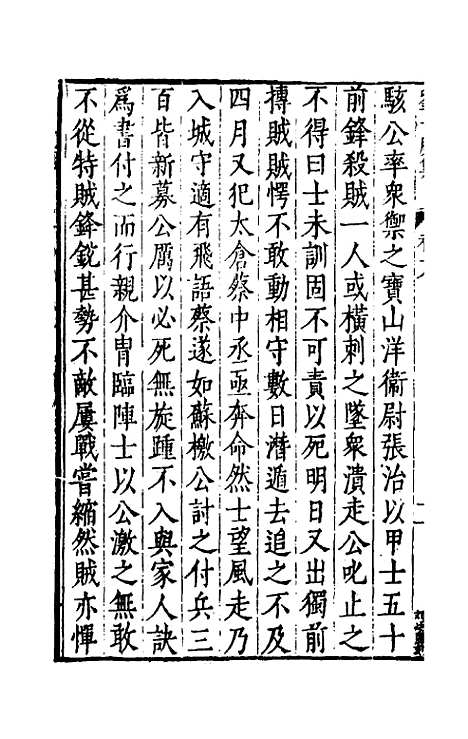 駭公率衆禦之寶山洋衞尉張治以甲士五十
前鋒殺賊一人或橫刺之墜衆潰走公叱止之
不得曰士未訓固不可責以死明日又出獨前
摶賊賊愕不敢動相守數日潛遁去追之不及
四月又犯太倉蔡中丞亟奔命然士望風走乃
入城守適有飛語蔡遂如蘇檄公討之付兵三
百皆新募公厲以必死無旋踵不入與家人訣
爲書付之而行親介冑臨陣士以公激之無敢
不從特賊鋒銳甚勢不敵屢戰嘗縮然賊亦憚